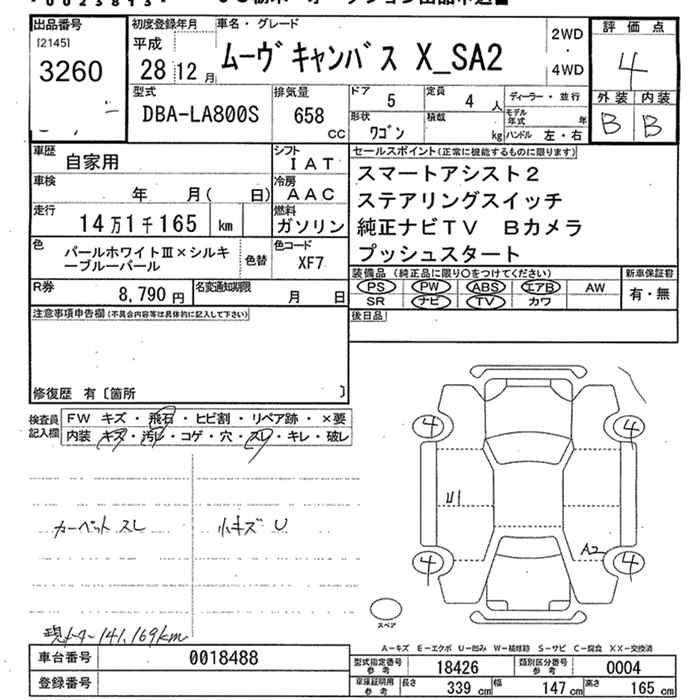 出品番号
[2145]
3260
初度登録年月
平成
28 12 月
車名・グレード
ムーヴ キャンバス X_SA2
2WD
・
4WD
評価点
4
外装 内装
B B
型式
DBA-LA800S
排気量
658
cc
ドア
5
定員
4 人
形状
ワゴン
積載
kg
ディーラー・並行
モデル年式 年
ハンドル 左・右
車歴
自家用
車検
年 月( 日)
走行
14万1千165 km
色
パールホワイトⅢ×シルキ
ーブルーパール
色替
シフト
IAT
冷房
AAC
燃料
ガソリン
色コード
XF7
R券
8,790 円
名変通知期限
月 日
セールスポイント(正常に機能するものに限ります)
スマートアシスト2
ステアリングスイッチ
純正ナビTV Bカメラ
プッシュスタート
装備品 (純正品に限り○をつけてください)
新車保証書
PS PW ABS エアB AW
SR ナビ TV カワ
有・無
後日品
注意事項申告欄(不具合内容等は具体的に記入して下さい)
修復歴 有〔箇所 〕
検査員
記入欄
FW キズ・飛石・ヒビ割・リペア跡・×要
内装 キズ・汚レ・コゲ・穴・スレ・キレ・破レ
カーペット スレ
小キズ U
現メーター 141,169km
4
4
U1
A2
4
4
スペア
A−キズ E−エクボ U−凹み W−補修跡 S−サビ C−腐食 XX−交換済
車台番号
0018488
登録番号
型式指定番号
参考
18426
類別区分番号
参考
0004
車庫証明用
参考
長さ 339 cm
幅 147 cm
高さ 165 cm